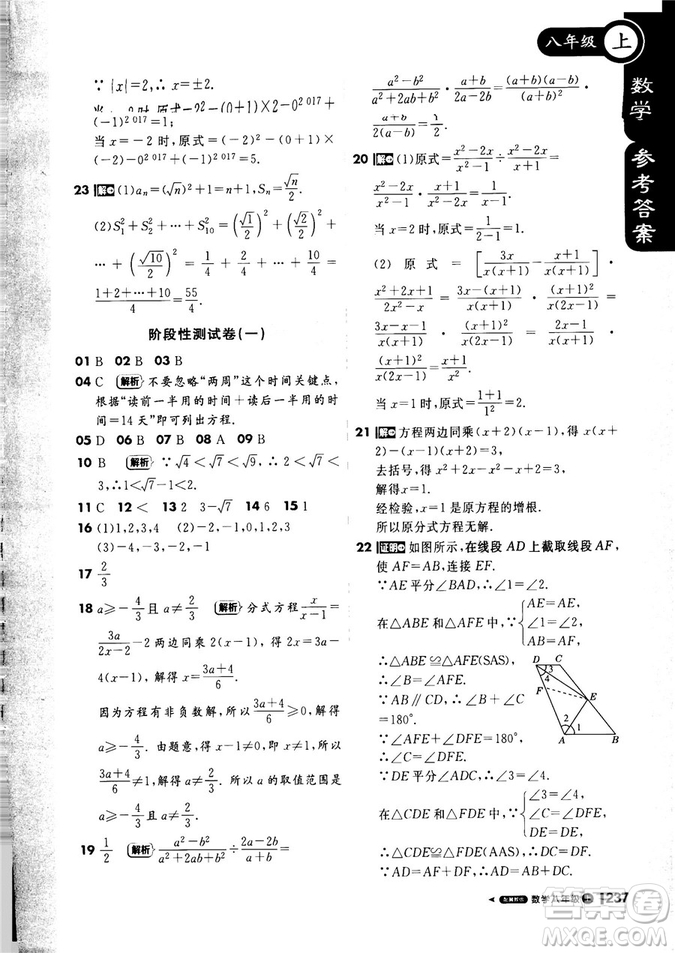 八年级 上
数学 参考答案
∵|x|=2,∴x=±2.
(-1)²⁰¹⁷
当x=-2时,原式=(-2)²-(0+1)×
-0²⁰¹⁷+(-1)²⁰¹⁷=5.
23 解 (1)aₙ=(√n)²+1=n+1,Sₙ=√n/2
(2)S₁²+S₂²+⋯+S₁₀²=(√1/2)²+(√2/2)²+⋯+
(√10/2)²=1/4+2/4+3/4+⋯+10/4=
(1+2+⋯+10)/4=55/4.
阶段性测试卷(一)
01 B 02 B 03 B
04 C 解析 不要忽略“两周”这个时间关键点,
根据“读前一半用的时间+读后一半用的时
间=14天”即可列出方程.
05 D 06 B 07 B 08 A 09 B
10 B 解析 ∵√4<√7<√9,∴2<√7<
3,∴1<√7-1<2.
11 C 12 < 13 2 14 3-√7 15 1
16 (1)1,2,3,4 (2)-2,-1,0,1
(3)-4,-3,-2,2,3,4
17 2/3
18 a≥-4/3且a≠2/3 解析 分式方程x/(x-1)=
3a/(2x-2)-2两边同乘2(x-1),得2x=3a-
4(x-1),解得x=(3a+4)/6.
因为方程有非负数解,所以(3a+4)/6≥0,解得
a≥-4/3.由题意,得x-1≠0,所以x≠1,所以
(3a+4)/6≠1,解得a≠2/3.所以a的取值范围是
a≥-4/3且a≠2/3.
19 1/2 解析 (a²-b²)/(a²+2ab+b²)÷(2a-2b)/(a+b)=
(a²-b²)/(a²+2ab+b²)·(a+b)/(2a-2b)=(a+b)(a-b)/(a+b)²·
(a+b)/2(a-b)=1/2.
20 解 (1)原式=(x²-2x)/(x²-1)÷(x²-2x)/(x+1)=
(x²-2x)/(x²-1)·(x+1)/(x²-2x)=1/(x-1).
当x=2时,原式=1/(2-1)=1.
(2)原式=[3x/x(x+1)-
(x²+2x+1)/(2x²-x)=(3x-(x+1))/x(x+1)·
(3x-x-1)/x(x+1)·
当x=1时,原式=(1+1)/1²=2.
21 解 方程两边同乘(x+2)(x-1),得x(x+
2)-(x+2)(x-1)=3.
去括号,得x²+2x-x²-x+2=3.
解得x=1.
经检验,x=1是原方程的增根.
所以原分式方程无解.
22 证明 如图所示,在线段AD上截取线段AF,
使AF=AB,连接EF.
∵AE平分∠BAD,∴∠1=∠2.
在△ABE和△AFE中,∵{AE=AE,∠1=∠2,AB=AF,
∴△ABE≌△AFE(SAS),
∴∠B=∠AFE.
∵AB∥CD,∴∠B+∠C
=180°.
∵∠AFE+∠DFE=180°,
∴∠C=∠DFE.
∵DE平分∠ADC,∴∠3=∠4.
在△CDE和△FDE中,∵{∠3=∠4,∠C=∠DFE,DE=DE,
∴△CDE≌△FDE(AAS),∴CD=DF.
∵AD=AF+DF,∴AD=AB+CD.
D C 3 4 F E 2 1 A B
数学八年级 上 237
答案圈
MXQE.COM